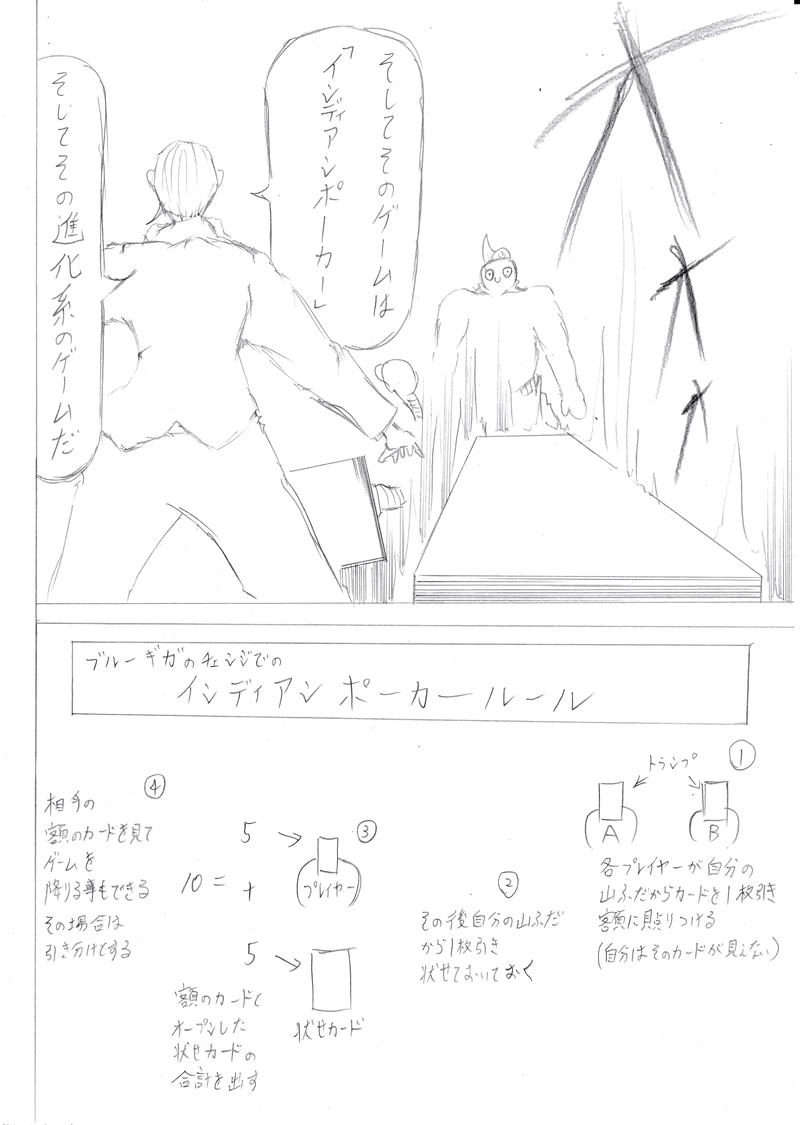 そしてそのゲームは
「インディアンポーカー」
そしてその進化系のゲームだ
ブルーギガのチェンジでの
インディアンポーカールール
①
トランプ
A
B
各プレイヤーが自分の
山ふだからカードを1枚引き
客額に貼りつける
(自分はそのカードが見えない)
②
その後自分の山ふだ
から1枚引き
状せておいておく
③
5
プレイヤー
10 = +
5
状せカード
額のカードと
オープンした
状せカードの
合計を出す
④
相手の
額のカードを見て
ゲームを
降りる事もできる
その場合は
引き分けとする